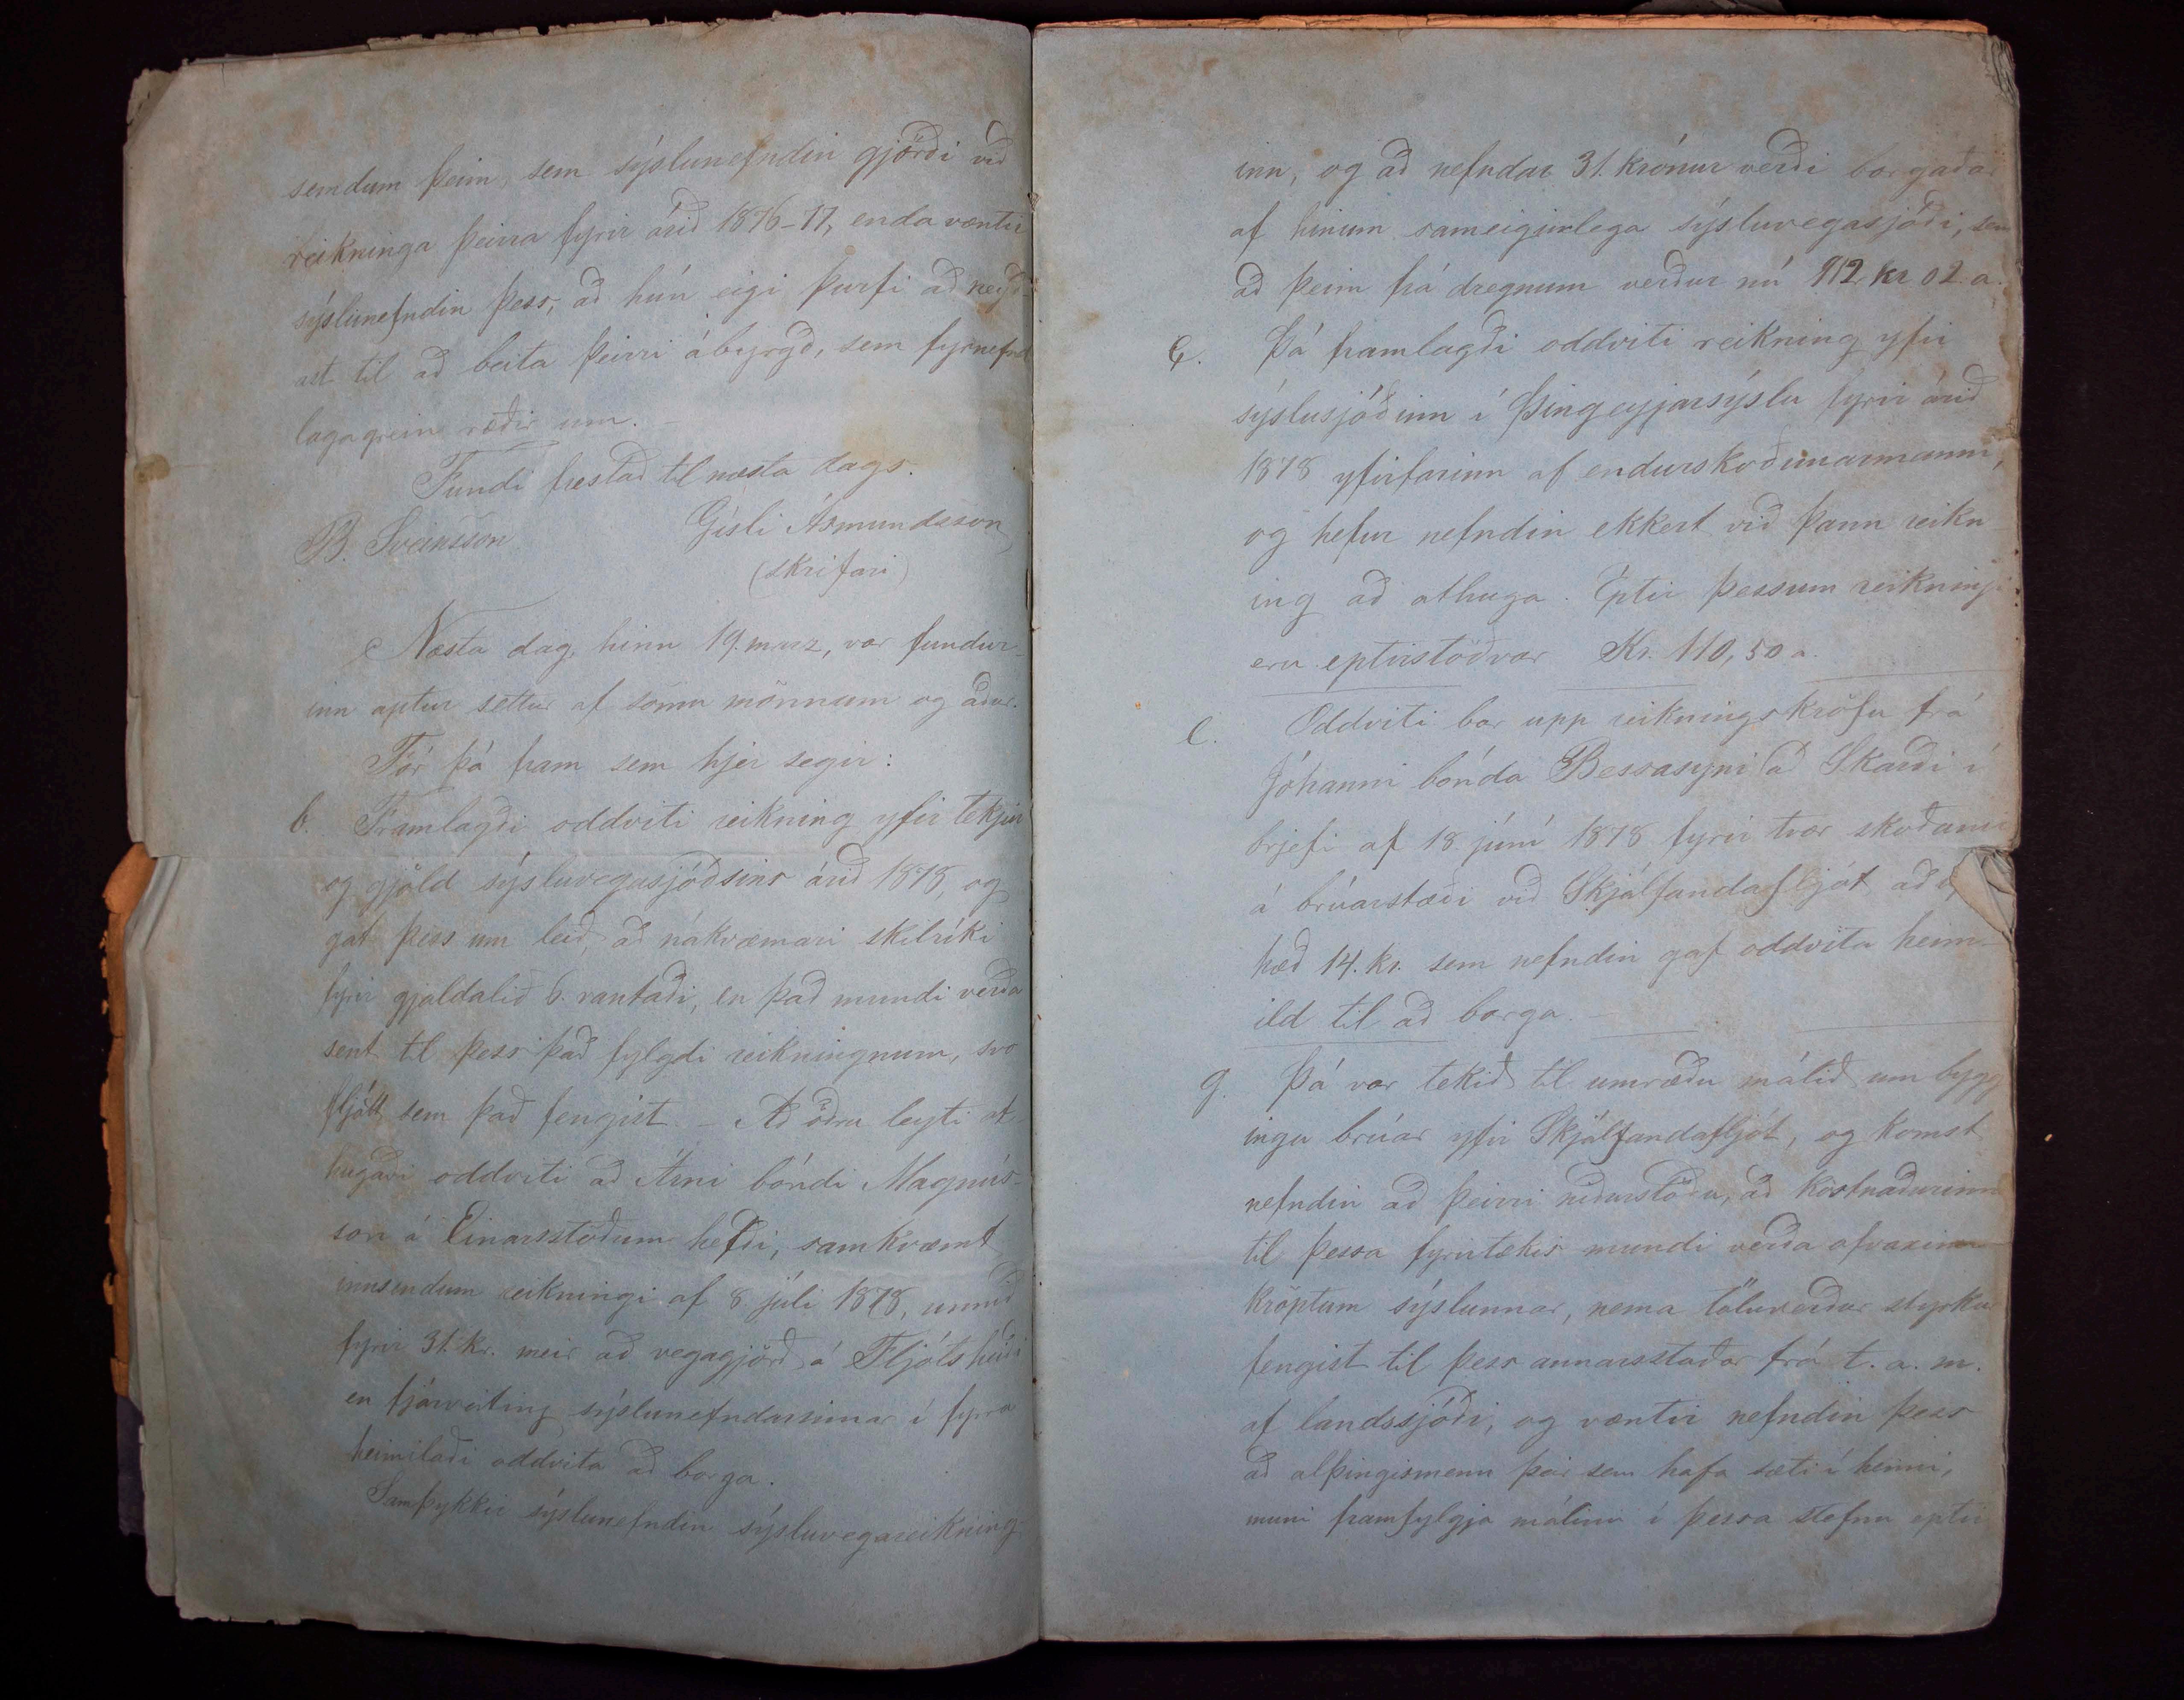 semdum þeim, sem sýslunefndin gjörði við
reikninga þeirra fyrir árið 1876-77, enda væntir
sýslunefndin þess, að hún eigi þurfi að neyð-
ast til að beita þeirri ábyrgð, sem fyrnefnd
lagagrein ræðir um. –
Fundi frestað til næsta dags.
B. Sveinsson Gísli Ásmundsson
(skrifari)
Næsta dag, hinn 19. marz, var fundur-
inn aptur settur af sömu mönnum og áður.
Fór þá fram sem hjer segir:
b. Framlagði oddviti reikning yfir tekjur
og gjöld sýsluvegasjóðsins árið 1878, og
gat þess um leið, að nákvæmari skilríki
fyrir gjaldalið 6. vantaði, en það mundi verða
sent til þess það fylgdi reikningnum, svo
fljótt sem það fengist. – Að öðru leyti at-
hugaði oddviti að Árni bóndi Magnús-
son á Einarsstöðum hefði, samkvæmt
innsendum reikningi af 8 júli 1878, unnið
fyrir 31. kr. meir að vegagjörð á Fljótsheiði
en fjárveiting sýslunefndarinnar í fyrra
heimilaði oddvita að borga.
Samþykkir sýslunefndin sýsluvegareikning-
inn, og að nefndar 31. krónur verði borgaðar
af hinum sameiginlega sýsluvegasjóði, sem
að þeim frá dregnum verður nú 912 kr 02 a.
Þá framlagði oddviti reikning yfir
sýslusjóðinn í Þingeyjarsýslu fyrir árið
1878 yfirfarinn af endurskoðunarmanni,
og hefur nefndin ekkert við þann reikn
ing að athuga. Eptir þessum reikningi
eru eptirstöðvar Kr. 110,50 a.
e. Oddviti bar upp reikningskröfu frá
Jóhanni bónda Bessasyni að Skarði í
brjefi af 18. júní 1878 fyrir tvær skoðanir
á brúarstæði við Skjálfandafljót að
hæð 14. kr. sem nefndin gaf oddvita heim-
ild til að borga. –
g. Þá var tekið til umræðu málið um bygg
ingu brúar yfir Skjálfandafljót, og komst
nefndin að þeirri niðurstöðu, að kostnaðurinn
til þessa fyrirtækis mundi verða ofvaxinn
kröptum sýslunnar, nema töluverður styrkur
fengist til þess annarsstaðar frá t. a. m.
af landssjóði, og væntir nefndin þess
að alþingismenn þeir sem hafa sæti í henni,
muni framfylgja málinu í þessa stefnu eptir